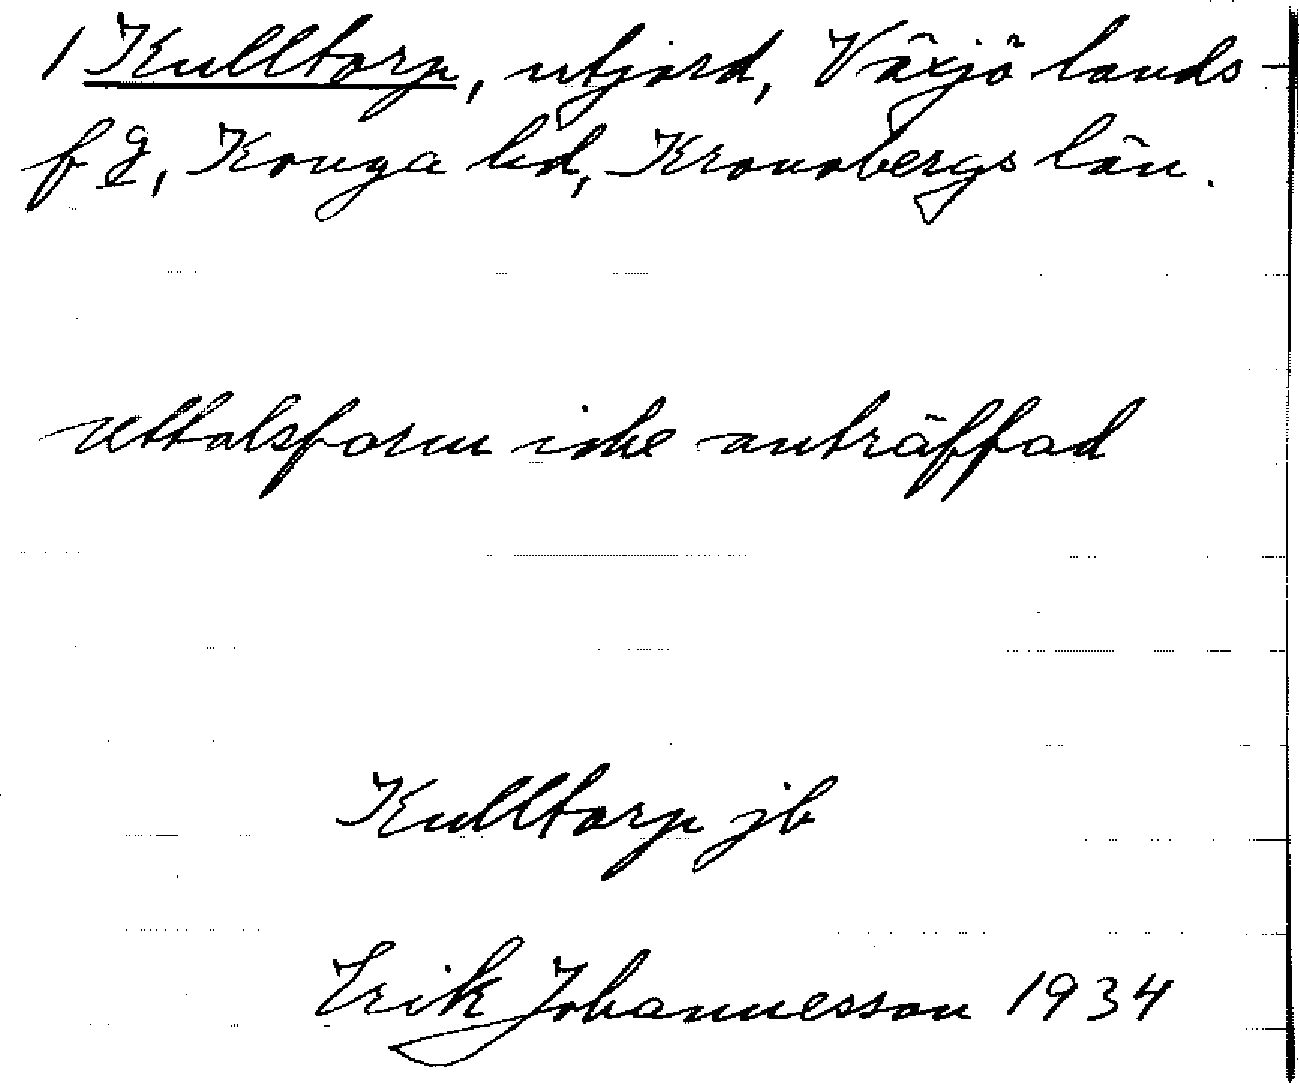 1 Kulltorp, utjord, Växjö lands-
fg, Konga hd, Kronobergs län.
Uttalsform icke anträffad
Kulltorp jb
Erik Johannesson 1934